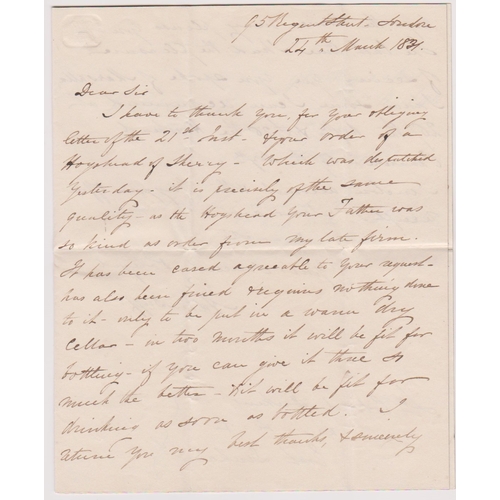 95 Regent Street London
24th March 1831.
Dear Sir
I have to thank you for your obliging
letter of the 21st Inst. & your order of a
Hogshead of Sherry - which was despatched
Yesterday - it is precisely of the same
quality - as the Hogshead your Father was
so kind as order from my late firm.
It has been cased agreeable to your request -
has also been fined & requires nothing done
to it - only to be put in a warm dry
Cellar - in two months it will be fit for
bottling - if you can give it three so
much the better - & it will be fit for
drinking as soon as bottled. I
return you my best thanks, & sincerely